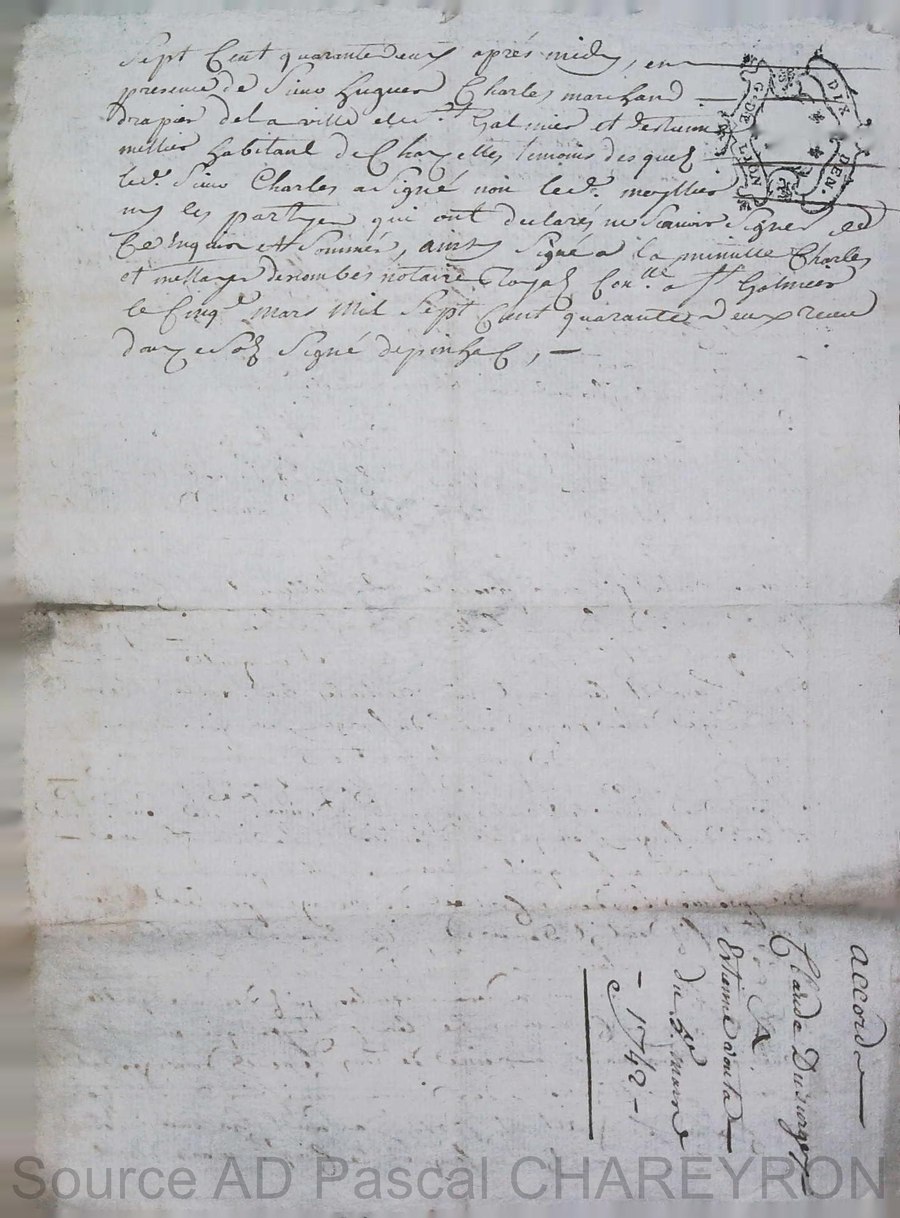 Sept Cent quarante deux aprés midy, en
presence de Sieur huguer Charles marchand
drapier de la ville de St Galmier et Estienne
mellier habitant de Chazelles temoins desquels
led. Sieur Charles a Signé non led. meyllier
ny les partyes qui ont declarés ne Scavoir Signer de
Ce enquis et Sommés, ainsy Signé a la minutte Charles
et denombes notaire Royal a St Galmier
le Cinqe mars Mil Sept Cent quarante deux receu
douze Sols Signé depinhac, —
G. DE LION
DIX DEN.
accord
Claude Dusurgey
&
Estienne
du 5e mars
- 1742 -
Source AD Pascal CHAREYRON